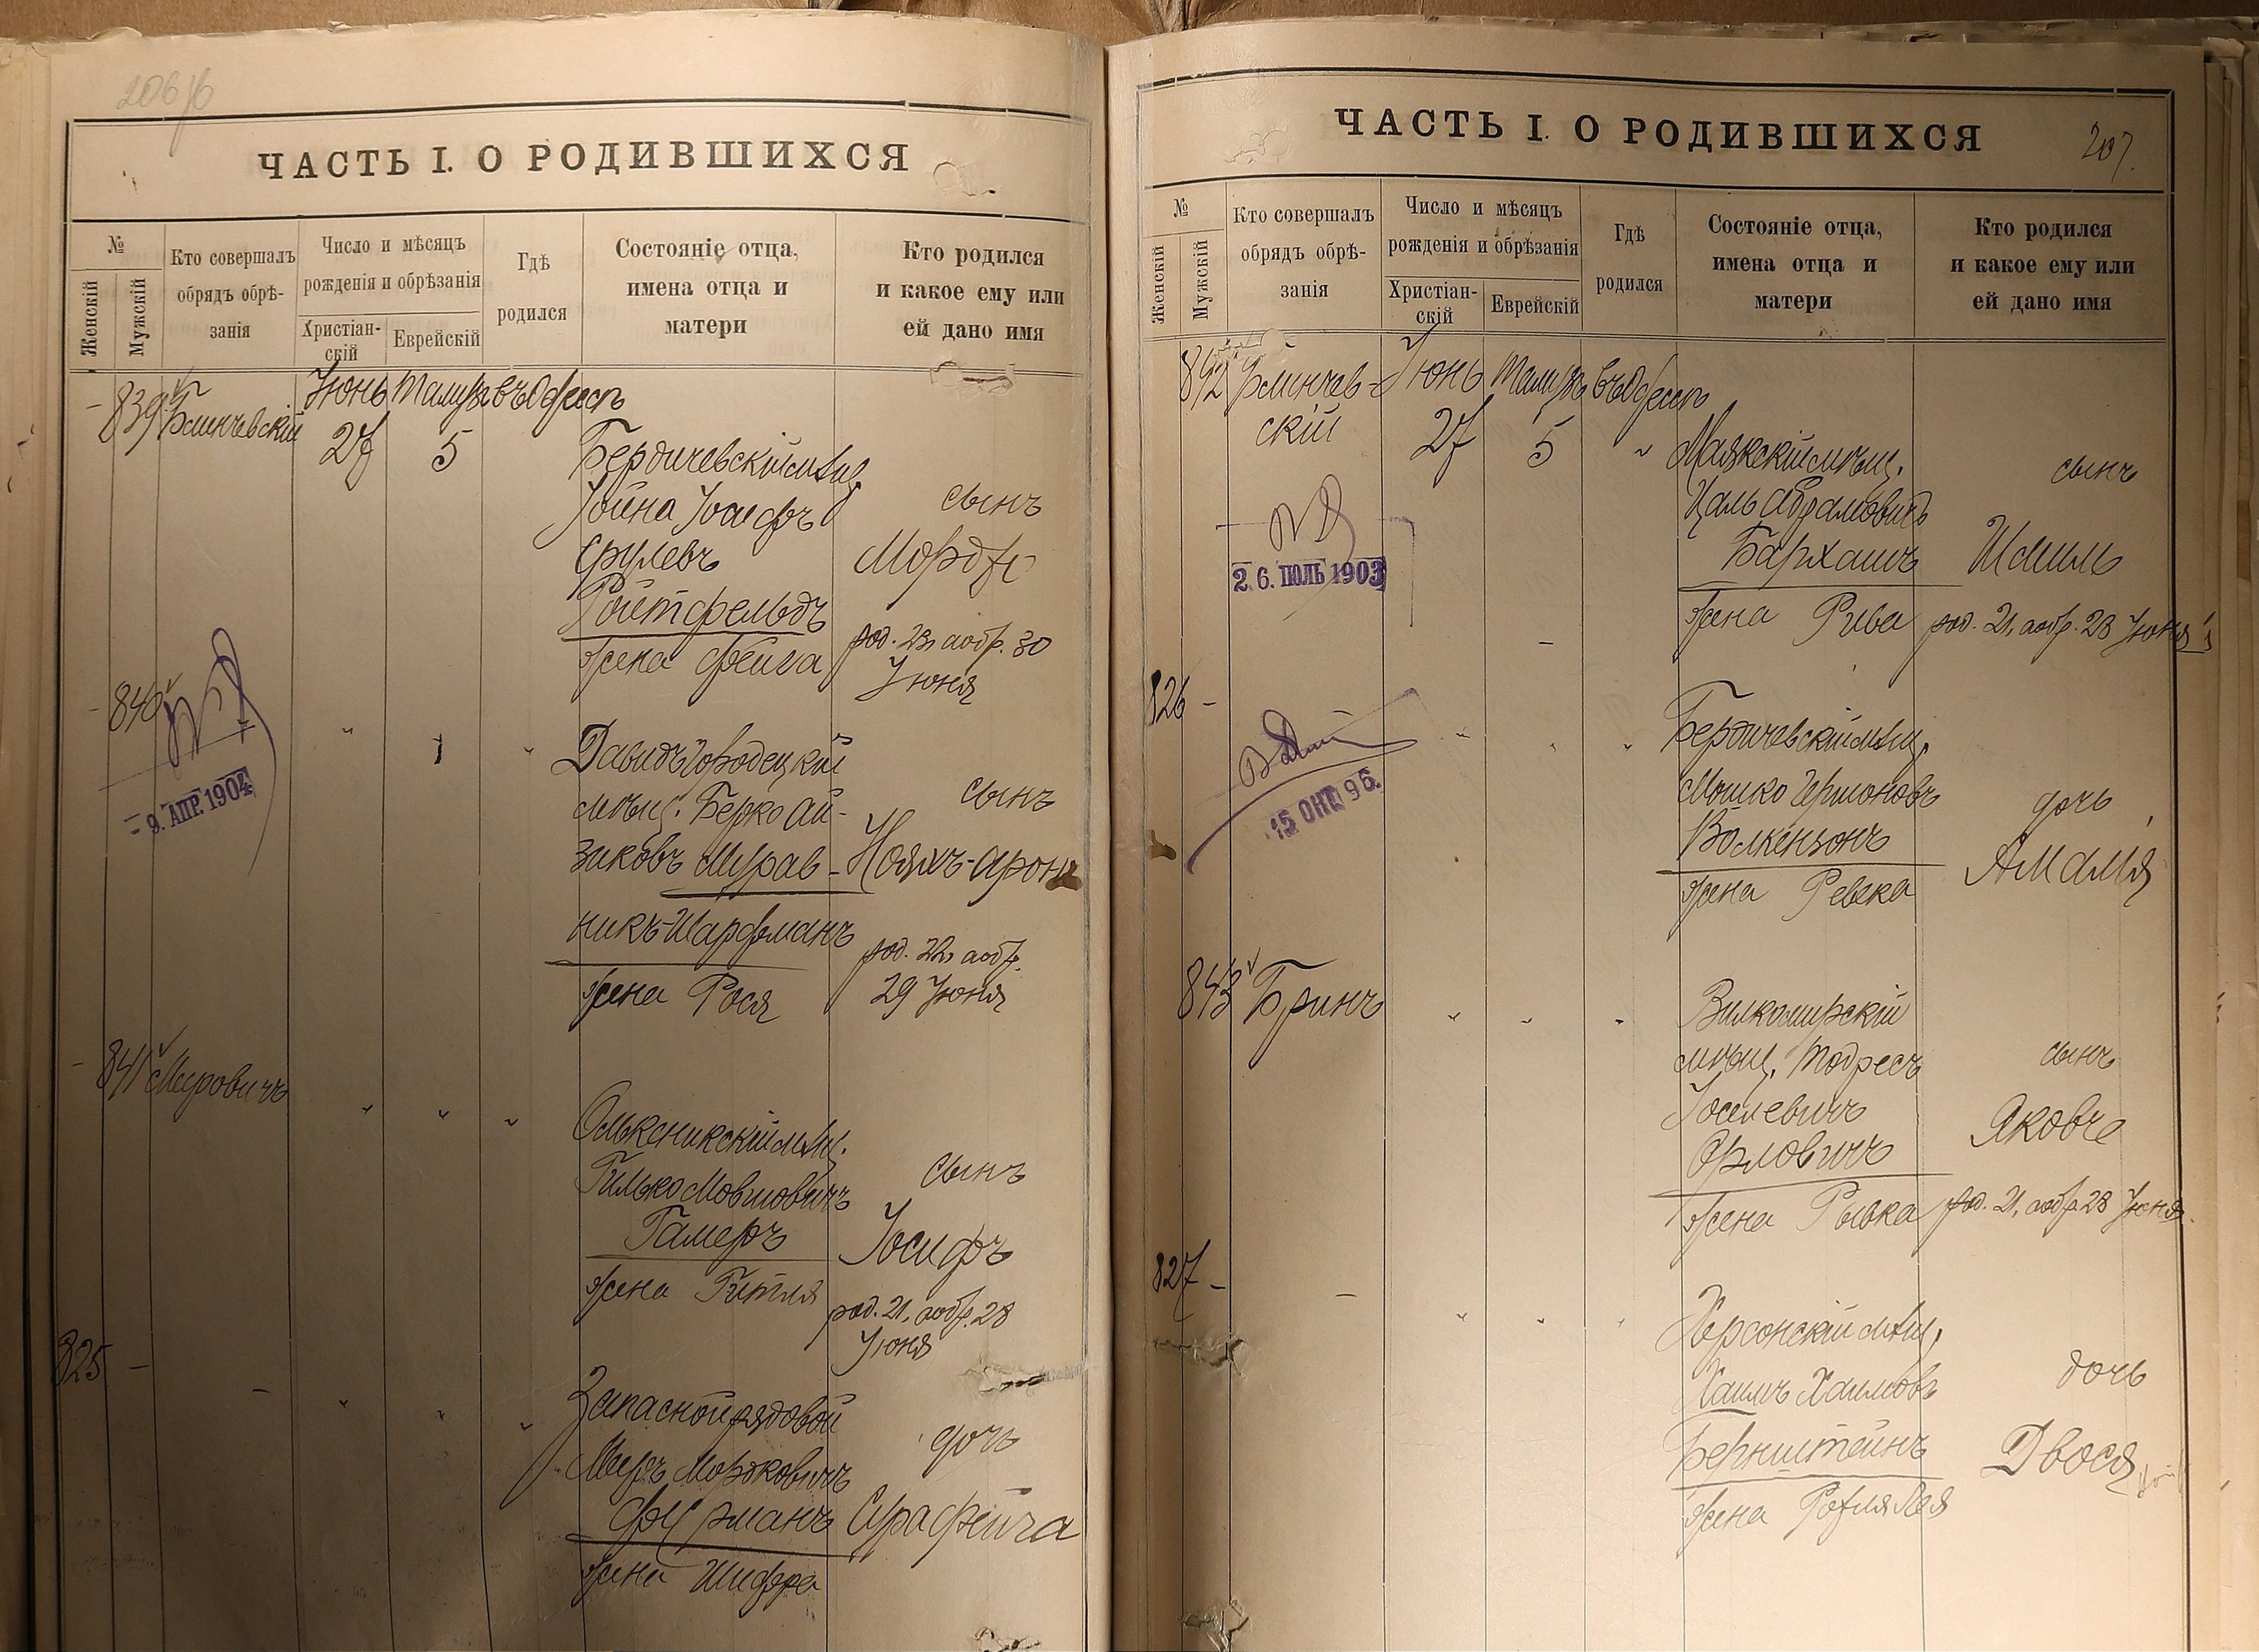 206 об
ЧАСТЬ I. О РОДИВШИХСЯ
№
Женскій
Мужскій
Кто совершалъ
обрядъ обрѣ-
занія
Число и мѣсяцъ
рожденія и обрѣзанія
Христіан-
скій
Еврейскій
Гдѣ
родился
Состояніе отца,
имена отца и
матери
Кто родился
и какое ему или
ей дано имя
839 Блинчевскій
Іюнь Тамузъ въ Одессѣ
27 5
Бердичевскій мѣщ.
Іойна Іосифъ
Срулевъ
Ройтфельдъ
жена Фейга
сынъ
Мордке
род. 23, а обр. 30
Іюня
840
9. АПР. 1904
Давидъ Городецкій
мѣщ. Берко Ай-
зиковъ Мурав-
никъ-Шарфманъ
жена Рося
сынъ
Нояхъ-Аронъ
род. 22, а обр.
29 Іюня
841 Мееровичъ
Олькеникскій мѣщ.
Гилько Мовшовичъ
Гамеръ
жена Гитля
сынъ
Іосифъ
род. 21, а обр. 28
Іюня
825 -
Запасной рядовой
Мееръ Мордковичъ
Фурманъ
жена Шифра
дочь
Сура Фейга
207.
ЧАСТЬ I. О РОДИВШИХСЯ
№
Женскій
Мужскій
Кто совершалъ
обрядъ обрѣ-
занія
Число и мѣсяцъ
рожденія и обрѣзанія
Христіан-
скій
Еврейскій
Гдѣ
родился
Состояніе отца,
имена отца и
матери
Кто родился
и какое ему или
ей дано имя
842 Блинчев-
скій
Іюнь Тамузъ въ Одессѣ
27 5
2. 6. ІЮЛЬ 1903
Маякскій мѣщ.
Цаль Абрамовичъ
Бархашъ
жена Рива
сынъ
Шмиль
род. 21, а обр. 28 Іюня
826 -
15 ОКТ. 96.
Бердичевскій мѣщ.
Мошко Гершоновъ
Волкензонъ
жена Ревека
дочь
Амалія
843 Бринъ
Вилкомирскій
мѣщ. Тодресъ
Іоселевичъ
Орловичъ
жена Рывка
сынъ
Яковъ
род. 21, а обр 28 Іюня.
827 -
Херсонскій мѣщ.
Хаимъ Хаимовъ
Бернштейнъ
жена Рейзля Лея
дочь
Двося